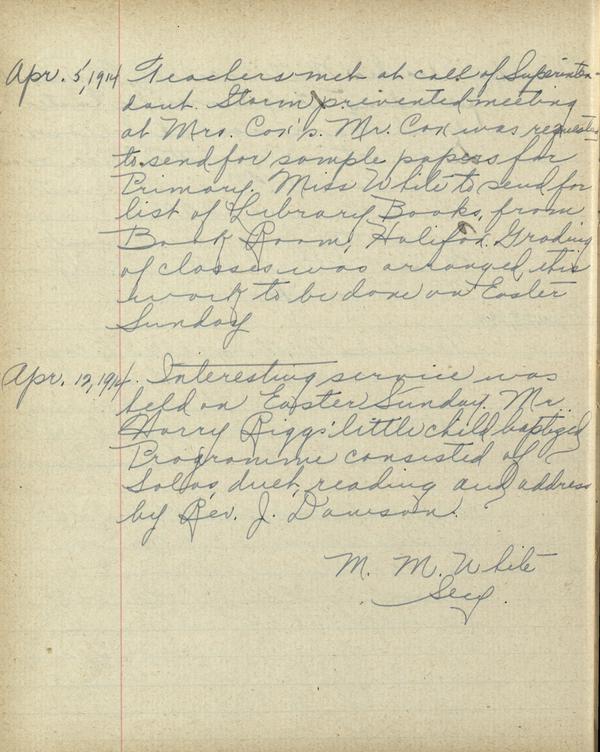 Apr. 5, 1914 Teachers met at call of Superinten-
dant. Storm prevented meeting
at Mrs. Cox's. Mr. Cox was requested
to send for sample papers for
Primary. Miss White to send for
list of Library Books, from
Book Room, Halifax. Grading
of classes was arranged, this
work to be done on Easter
Sunday
Apr. 12, 1914. Interesting service was
held on Easter Sunday. Mr.
Harry Riggs' little child baptized
Programme consisted of
Solos, duet, reading and address
by Rev. J. Dawson.
M. M. White
Secy.